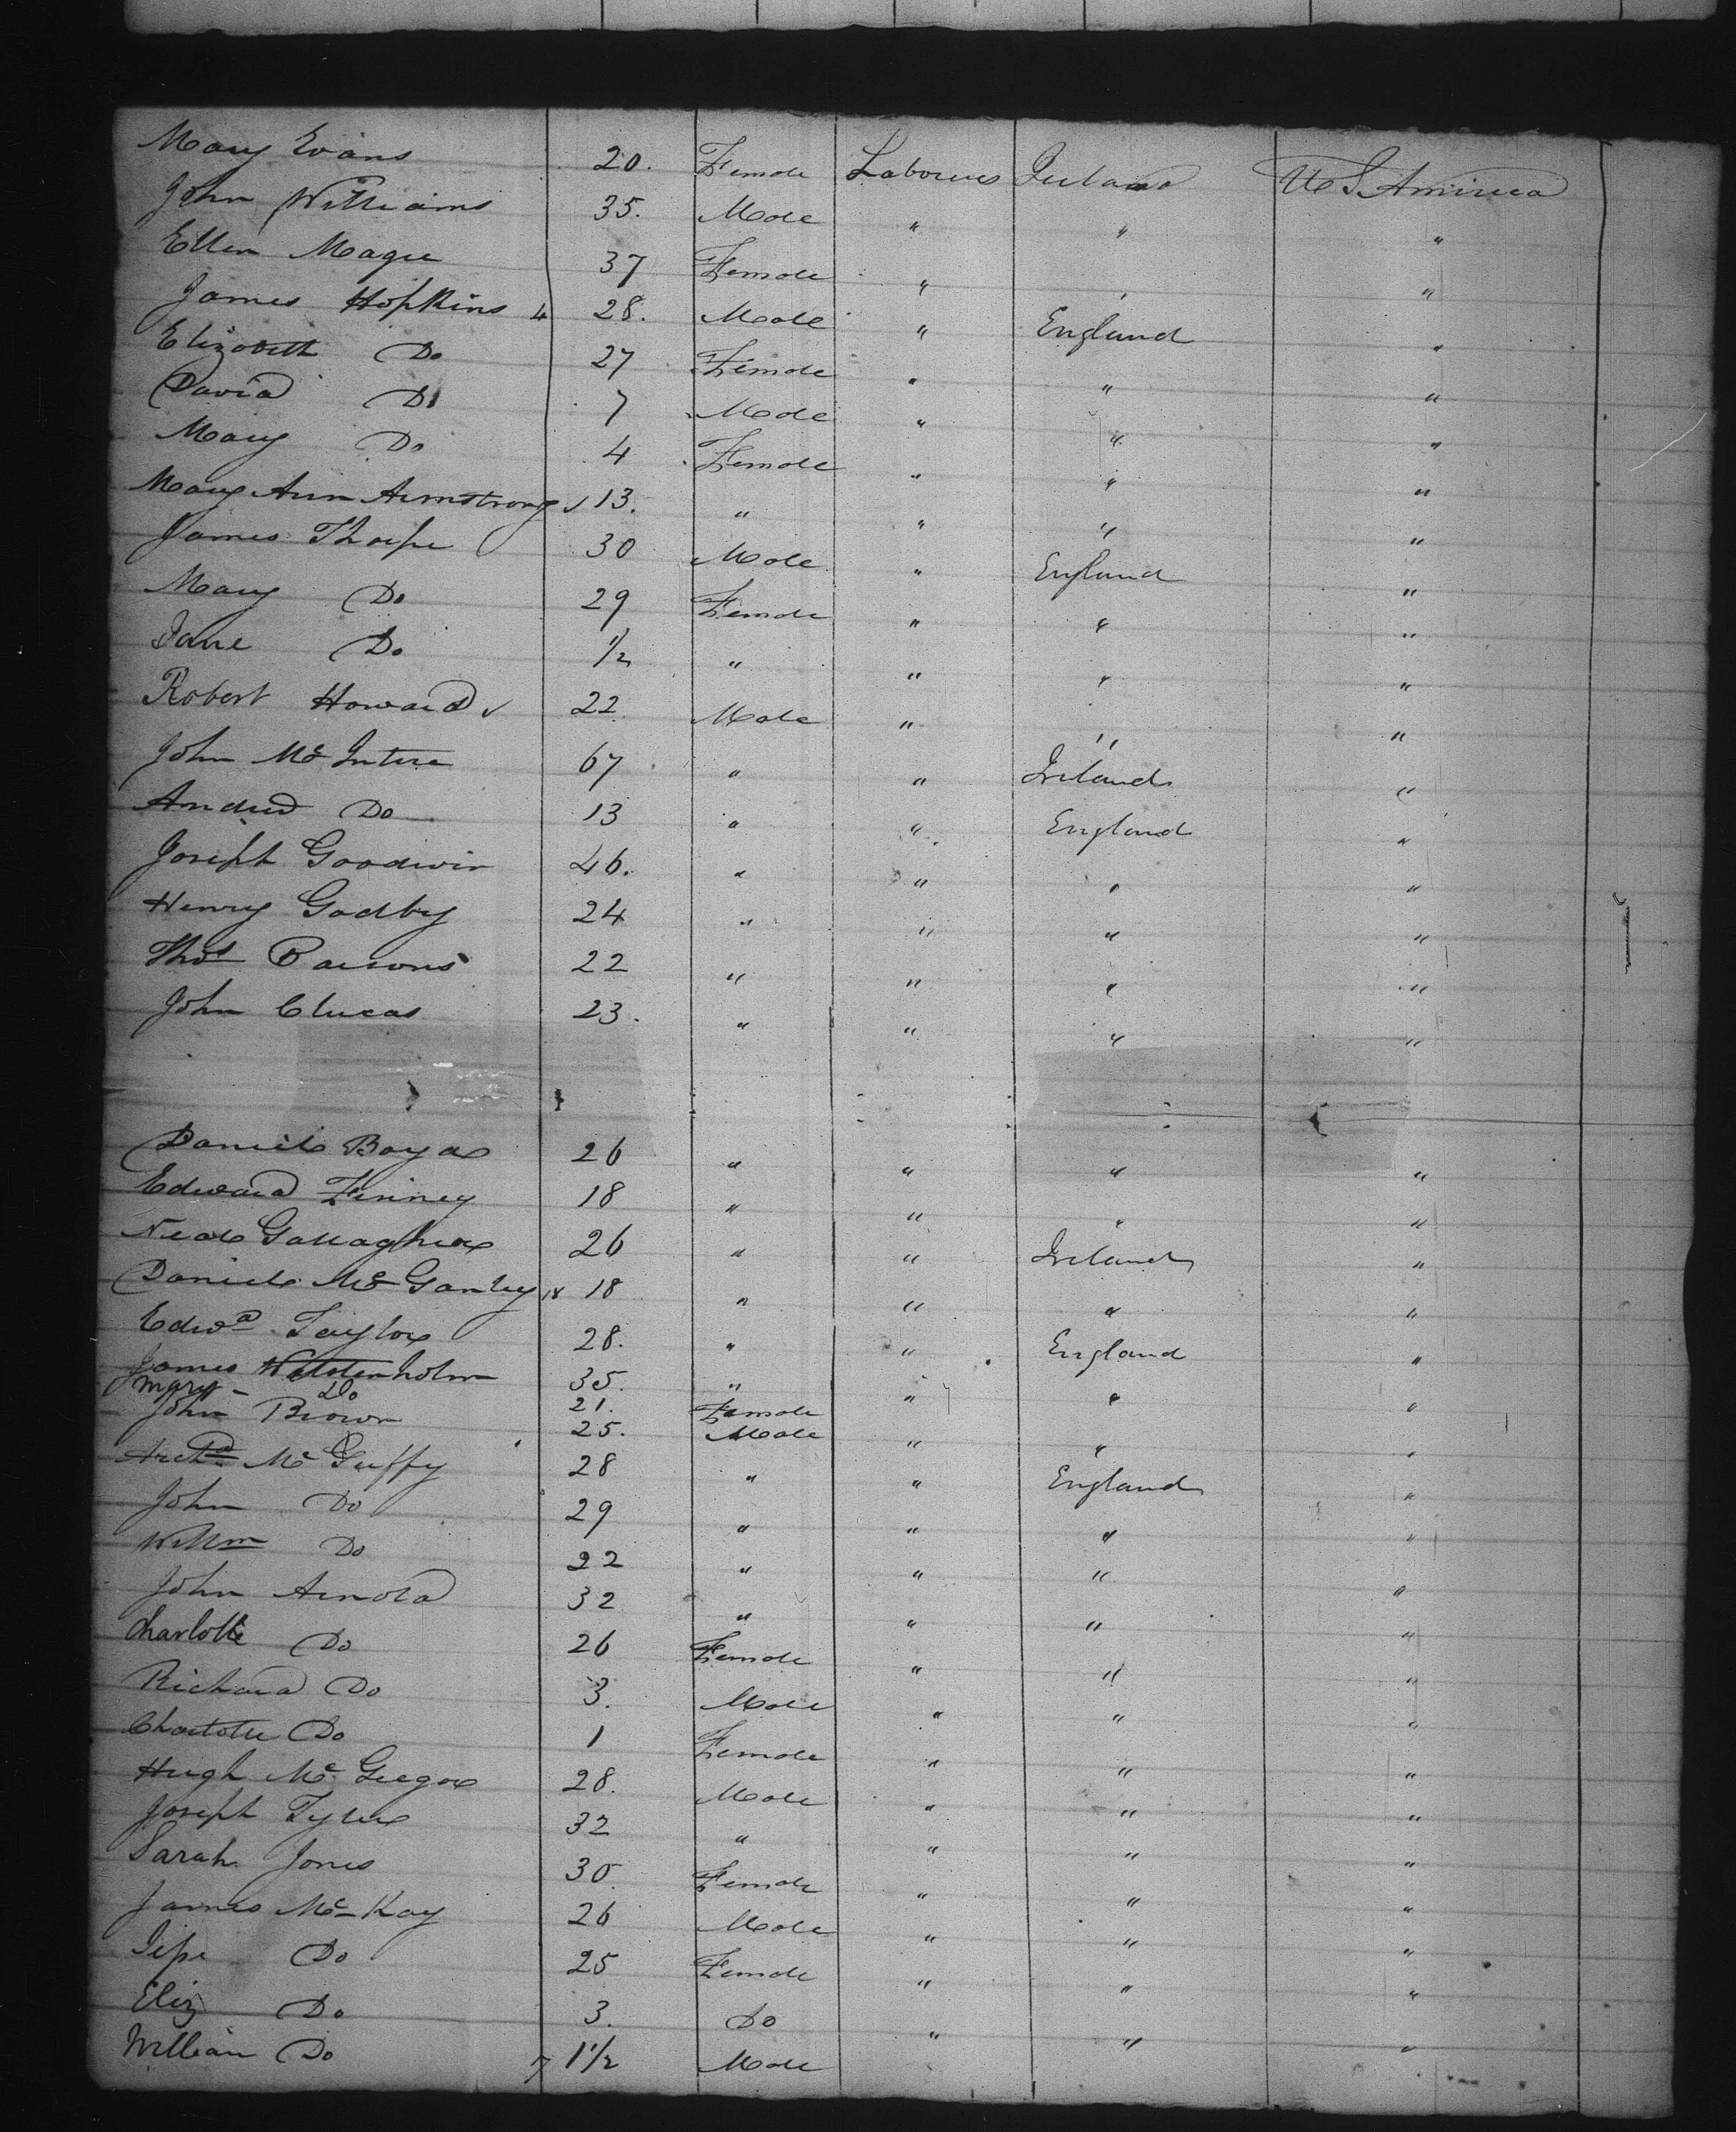 Mary Evans 20. Female Labourer Ireland U S America
John Williams 35. Male " " "
Ellen Magee 37 Female " " "
James Hopkins 4 28. Male " England "
Elizabeth Do 27 Female " " "
David Do 7 Male " " "
Mary Do 4 Female " " "
Mary Ann Armstrong 13. " " " "
James Thorpe 30 Male " England "
Mary Do 29 Female " " "
Jane Do 1/2 " " " "
Robert Howard 22 Male " " "
John McIntire 67 " " Ireland "
Andrew Do 13 " " England "
Joseph Goodwin 46. " " " "
Henry Godby 24 " " " "
Thos Parsons 22 " " " "
John Clucas 23. " " " "
Daniel 26 " " " "
Edward Finney 18 " " " "
Neal Gallagher 26 " " Ireland "
Daniel McGanley 18 " " " "
Edwd Taylor 28. " " England "
James Wolstenholm 35. " " " "
Mary Do 21. Female
John Brown 25. Male " " "
Archd McGuffy 28 " " England "
John Do 29 " " " "
Willm Do 22 " " " "
John Arnold 32 " " " "
Charlotte Do 26 Female " " "
Richard Do 3. Male " " "
Charlotte Do 1 Female " " "
Hugh McGregor 28. Male " " "
Joseph Tyler 32 " " " "
Sarah Jones 30. Female " " "
James McKay 26 Male " " "
Do 25 Female " " "
Eliz Do 3. Do " " "
William Do 7 1 1/2 Male